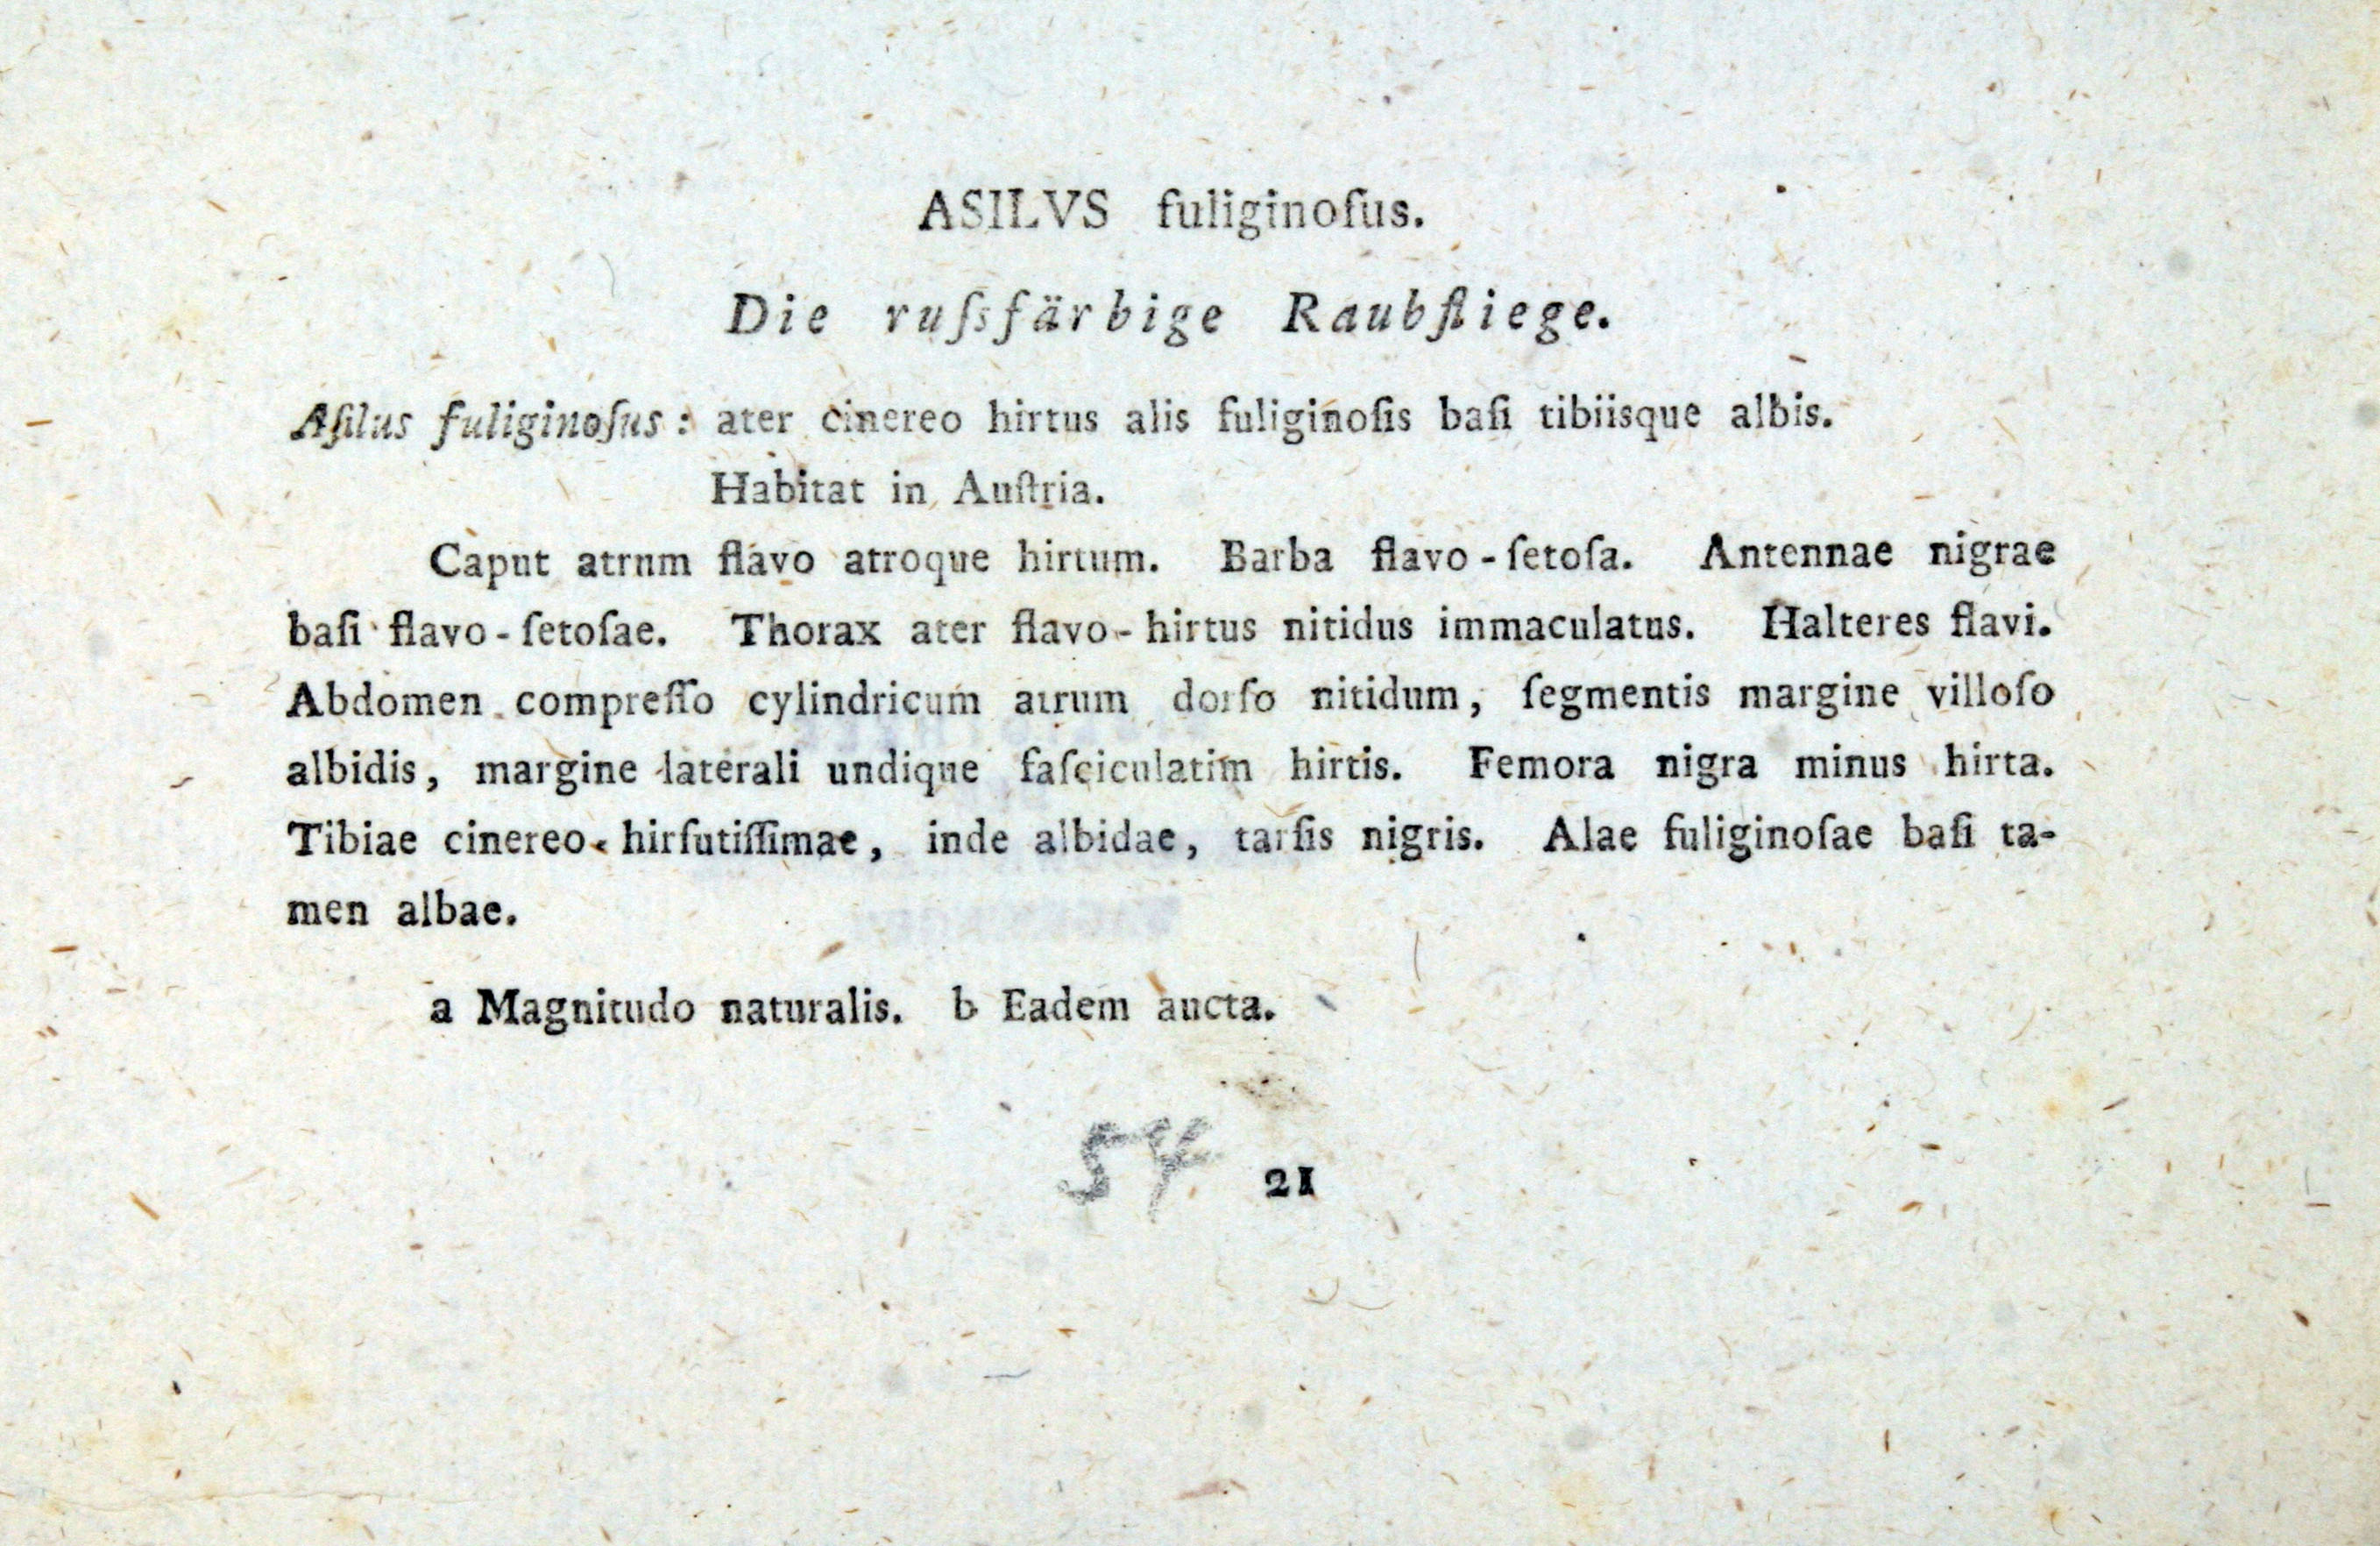 ASILVS fuliginoſus.
Die ruſsfärbige Raubfliege.
Aſilus fuliginoſus: ater cinereo hirtus alis fuliginoſis baſi tibiisque albis.
Habitat in Auſtria.
Caput atrum flavo atroque hirtum. Barba flavo-ſetoſa. Antennae nigrae
baſi flavo-ſetoſae. Thorax ater flavo-hirtus nitidus immaculatus. Halteres flavi.
Abdomen compreſſo cylindricum atrum dorſo nitidum, ſegmentis margine villoſo
albidis, margine laterali undique faſciculatim hirtis. Femora nigra minus hirta.
Tibiae cinereo-hirſutiſſimae, inde albidae, tarſis nigris. Alae fuliginoſae baſi ta-
men albae.
a Magnitudo naturalis. b Eadem aucta.
54 21